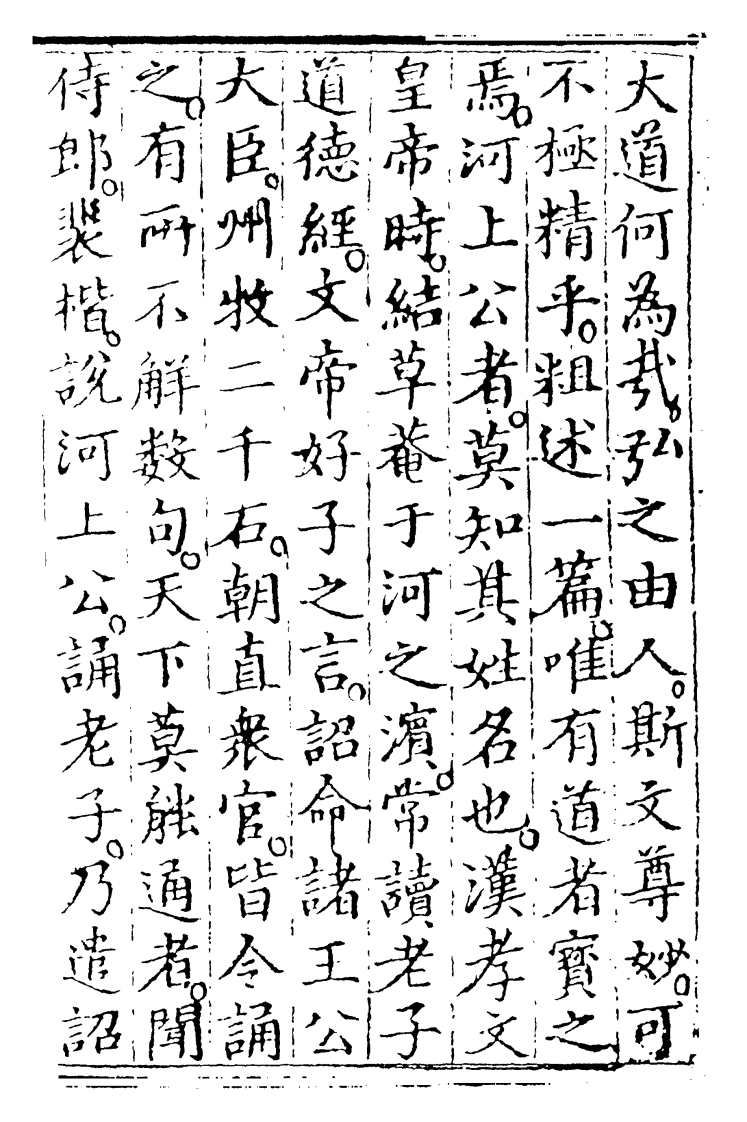 大道何為哉。弘之由人。斯文尊妙。可
不極精乎。粗述一篇。唯有道者寳之
焉。河上公者。莫知其姓名也。漢孝文
皇帝時。結草菴于河之濵。常讀老子
道德經。文帝好子之言。詔命諸王公
大臣。州牧二千石。朝直衆官。皆令誦
之。有所不解數句。天下莫能通者。聞
侍郎。裴楷。說河上公。誦老子。乃遣詔